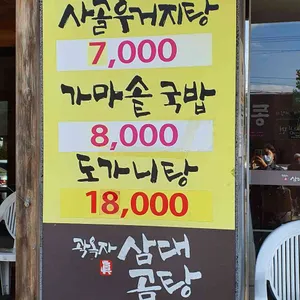 사골우거지탕
7,000
가마솥 국밥
8,000
도가니탕
18,000
곽옥자 삼대
곰탕